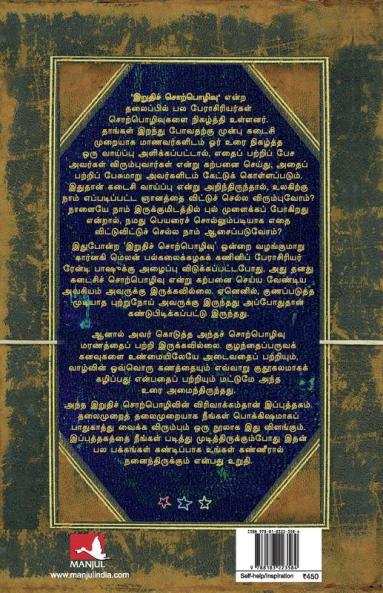 'இறுதிச் சொற்பொழிவு' என்ற
தலைப்பில் பல பேராசிரியர்கள்
சொற்பொழிவுகளை நிகழ்த்தி உள்ளனர்.
தாங்கள் இறந்து போவதற்கு முன்பு கடைசி
முறையாக மாணவர்களிடம் ஓர் உரை நிகழ்த்த
ஒரு வாய்ப்பு அளிக்கப்பட்டால், எதைப் பற்றிப் பேச
அவர்கள் விரும்புவார்கள் என்று கற்பனை செய்து, அதைப்
பற்றிப் பேசுமாறு அவர்களிடம் கேட்டுக் கொள்ளப்படும்.
இதுதான் கடைசி வாய்ப்பு என்று அறிந்திருந்தால், உலகிற்கு
நாம் எப்படிப்பட்ட ஞானத்தை விட்டுச் செல்ல விரும்புவோம்?
நாளையே நாம் இருக்குமிடத்தில் புல் முளைக்கப் போகிறது
என்றால், நமது பெயரைச் சொல்லும்படியாக எதை
விட்டுவிட்டுச் செல்ல நாம் ஆசைப்படுவோம்?
இதுபோன்ற 'இறுதிச் சொற்பொழிவு' ஒன்றை வழங்குமாறு
கார்னகி மெலன் பல்கலைக்கழகக் கணினிப் பேராசிரியர்
ரேன்டி பாஷுக்கு அழைப்பு விடுக்கப்பட்டபோது, அது தனது
கடைசிச் சொற்பொழிவு என்று கற்பனை செய்ய வேண்டிய
அவசியம் அவருக்கு இருக்கவில்லை. ஏனெனில், குணப்படுத்த
முடியாத புற்றுநோய் அவருக்கு இருந்தது அப்போதுதான்
கண்டுபிடிக்கப்பட்டு இருந்தது.
ஆனால் அவர் கொடுத்த அந்தச் சொற்பொழிவு
மரணத்தைப் பற்றி இருக்கவில்லை. குழந்தைப்பருவக்
கனவுகளை உண்மையிலேயே அடைவதைப் பற்றியும்,
வாழ்வின் ஒவ்வொரு கணத்தையும் எவ்வாறு குதூகலமாகக்
கழிப்பது என்பதைப் பற்றியும் மட்டுமே அந்த
உரை அமைந்திருந்தது.
அந்த இறுதிச் சொற்பொழிவின் விரிவாக்கம்தான் இப்புத்தகம்.
தலைமுறைத் தலைமுறையாக நீங்கள் பொக்கிஷமாகப்
பாதுகாத்து வைக்க விரும்பும் ஒரு நூலாக இது விளங்கும்.
இப்புத்தகத்தை நீங்கள் படித்து முடித்திருக்கும்போது இதன்
பல பக்கங்கள் கண்டிப்பாக உங்கள் கண்ணீரால்
நனைந்திருக்கும் என்பது உறுதி.
MANJUL
www.manjulindia.com
Self-help/Inspiration ₹450